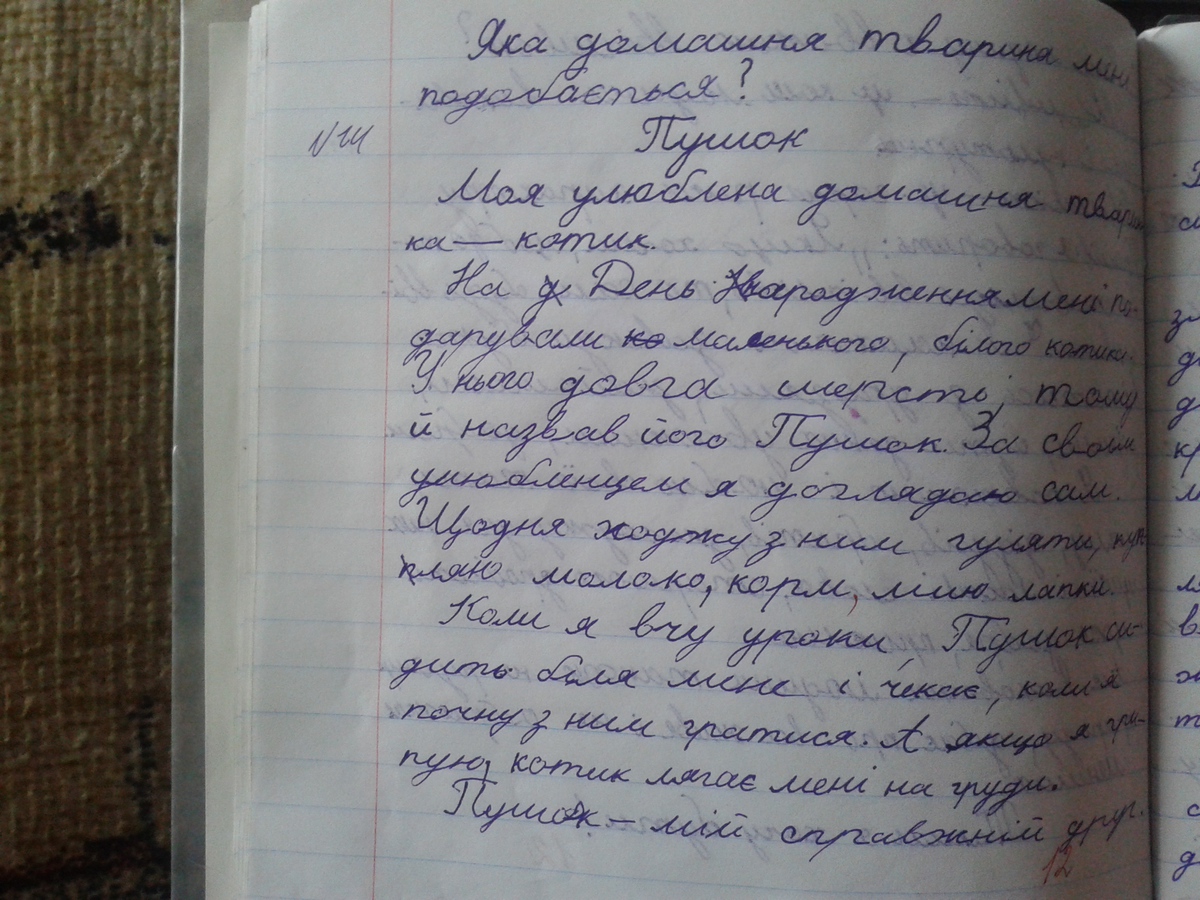 Яка домашня тварина мені
подобається?
Пушок
Моя улюблена домашня тварин-
ка — котик.
На День Народження мені по-
дарували маленького, білого котика.
У нього довга шерсть, тому
й назвав його Пушок. За своїм
улюбленцем я доглядаю сам.
Щодня ходжу з ним гуляти, куп-
ляю молоко, корм, мию лапки.
Коли я вчу уроки, Пушок си-
дить біля мене і чекає, коли я
почну з ним гратися. А якщо я гри-
пую, котик лягає мені на груди.
Пушок – мій справжній друг.
12